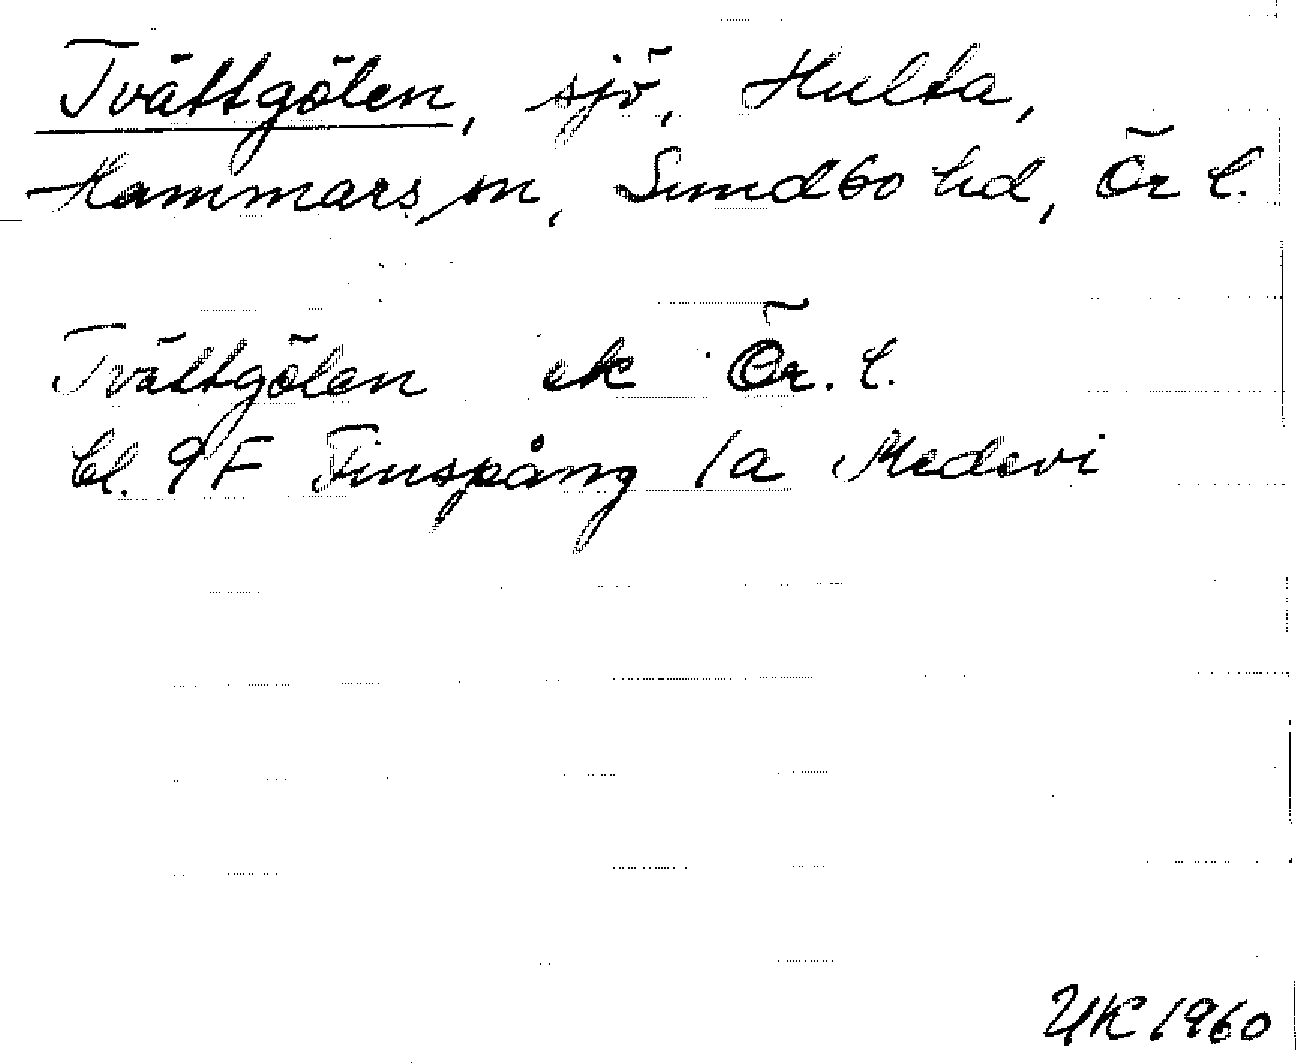 Tvättgölen, sjö, Hulta,
Hammars sn, Sundbo hd, Ör l.
Tvättgölen ek Ör. l.
bl. 9F Finspång 1a Medevi
UK 1960